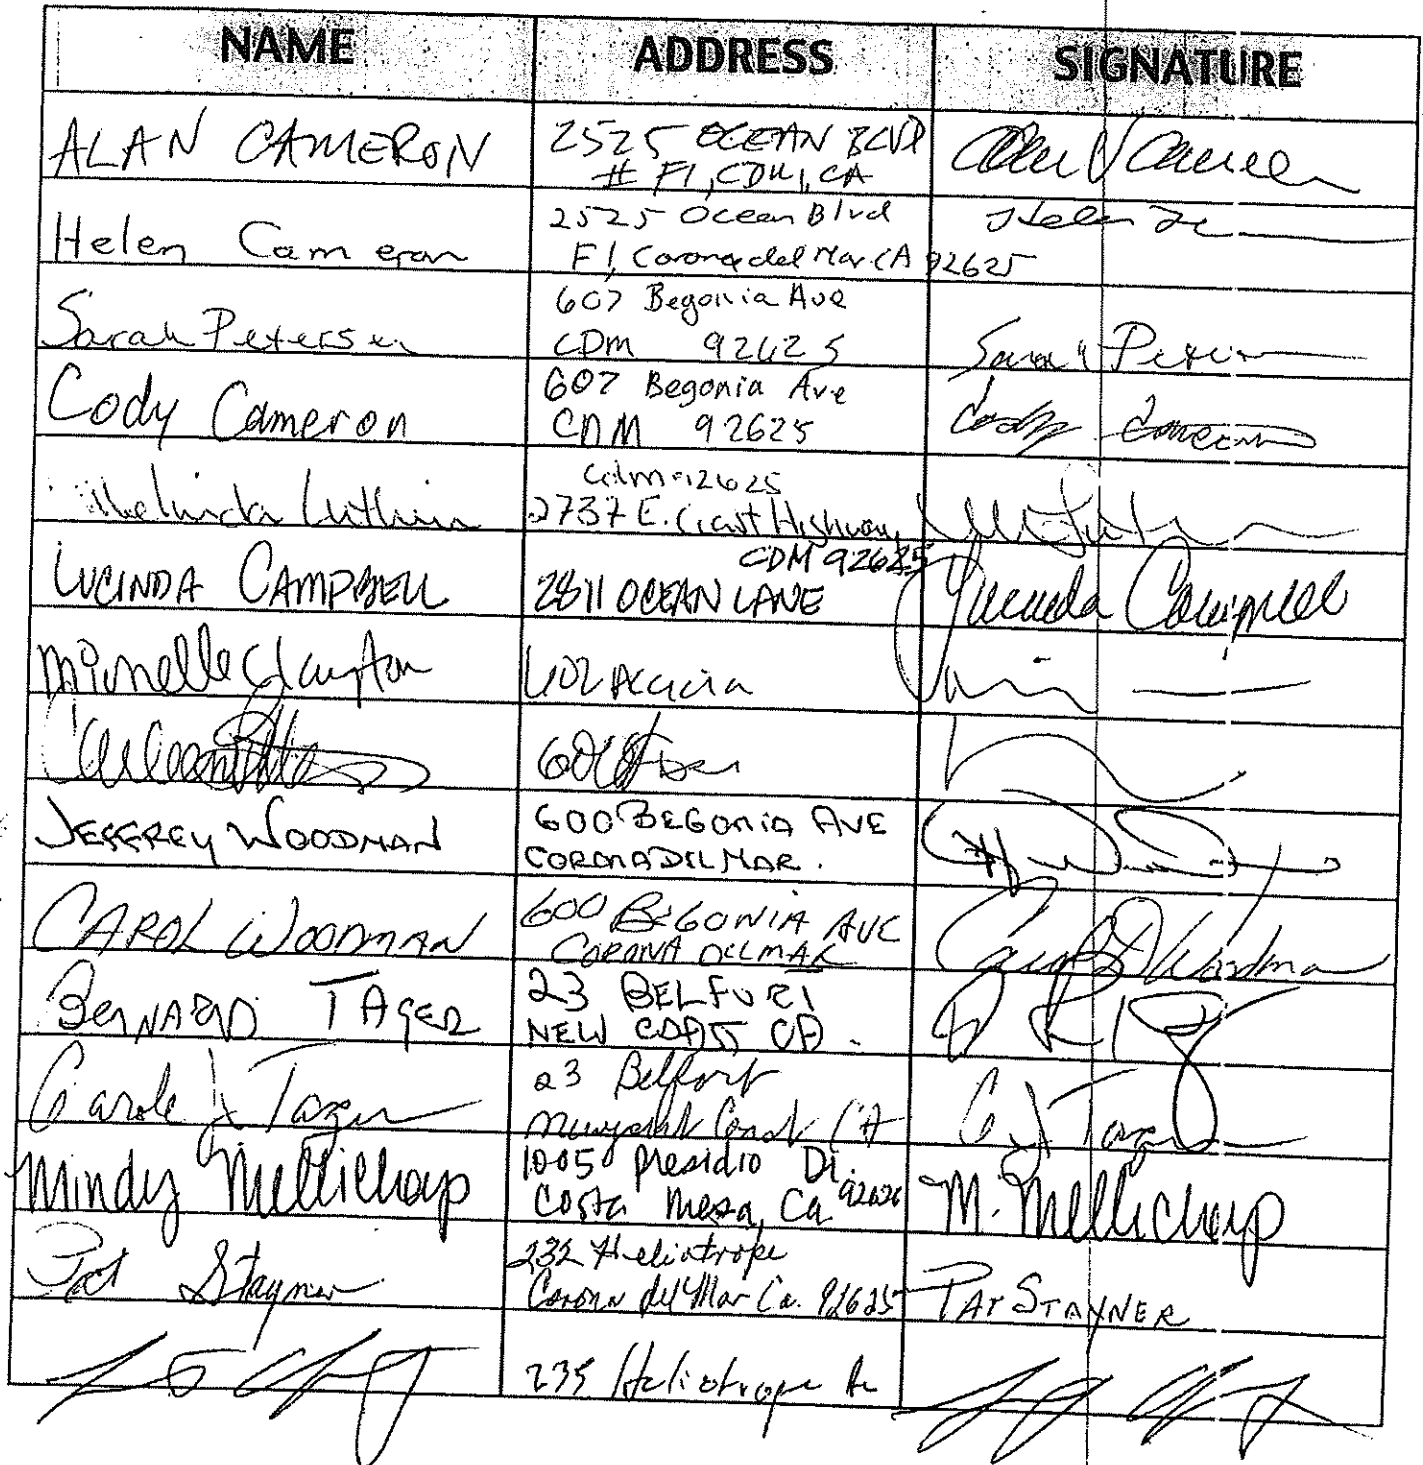 NAME ADDRESS SIGNATURE
ALAN CAMERON 2525 OCEAN BLVD
# F1, CDM, CA
Helen Cameron 2525 Ocean Blvd
F1, Corona del Mar, CA 92625
Sarah Petersen 607 Begonia Ave
CDM 92625
Cody Cameron 607 Begonia Ave
CDM 92625
Cody Cameron
Melinda Luthin cdm 92625
2737 E. Coast Highway
CDM 92625
LUCINDA CAMPBELL 2811 OCEAN LANE Lucinda Campbell
Michelle Clayton 602 Acacia
JEFFREY WOODMAN 600 BEGONIA AVE
CORONA DEL MAR.
CAROL WOODMAN 600 BEGONIA AVE
CORONA DEL MAR
Carol Woodman
BERNARD TAGER 23 BELFORT
NEW COAST CA.
Carole J Tager 23 Belfort
Newport Coast CA
C J Tager
Mindy Mellichamp 1005 Presidio Dr.
Costa Mesa, Ca 92626
M. Mellichamp
Pat Stayner 232 Heliotrope
Corona del Mar Ca. 92625
PAT STAYNER
235 Heliotrope Av